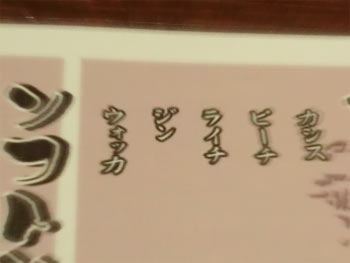 カシス
ピーチ
ライチ
ジン
ウォッカ
ソフ